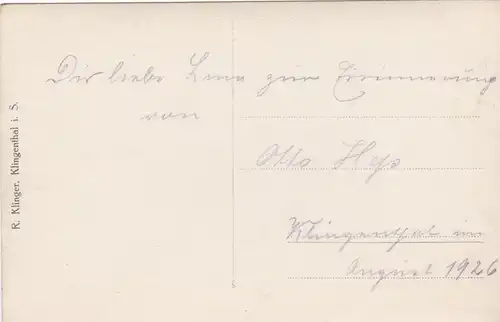 Dir liebe Lena zur Erinnerung
von
Otto Heß
Klingenthal im
August 1926
R. Klinger, Klingenthal i. S.